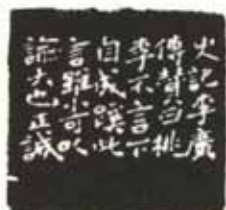 史記李廣
傳贊曰桃
李不言下
自成蹊此
言雖小可以
諭大也正誠